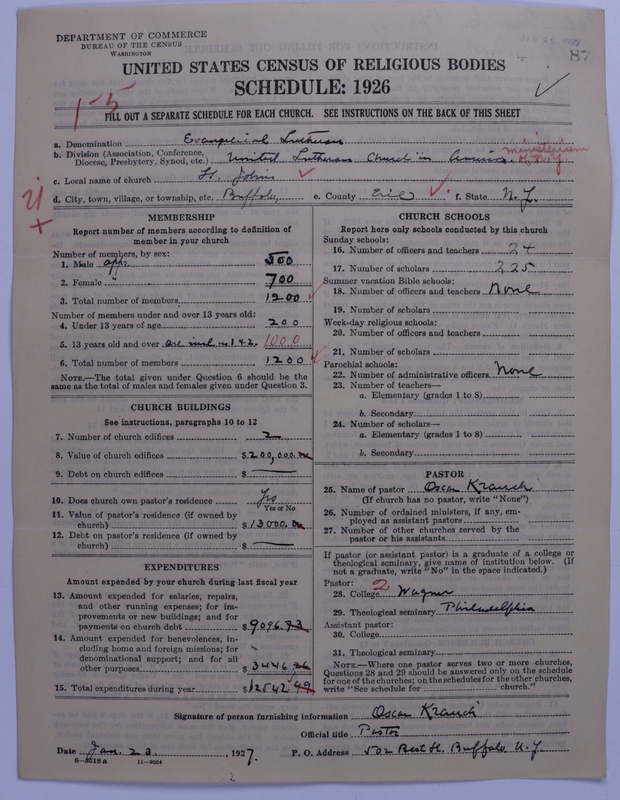 DEPARTMENT OF COMMERCE
BUREAU OF THE CENSUS
WASHINGTON
87
UNITED STATES CENSUS OF RELIGIOUS BODIES
SCHEDULE: 1926
1-5
FILL OUT A SEPARATE SCHEDULE FOR EACH CHURCH. SEE INSTRUCTIONS ON THE BACK OF THIS SHEET
a. Denomination Evangelical Lutheran
b. Division (Association, Conference, Diocese, Presbytery, Synod, etc.) United Lutheran Church in America. Ministerium of N.Y.
c. Local name of church St. Johns
d. City, town, village, or township, etc. Buffalo, e. County Erie f. State N.Y.
MEMBERSHIP
Report number of members according to definition of member in your church
Number of members, by sex:
1. Male appr. 500
2. Female " 700
3. Total number of members 1200
Number of members under and over 13 years old:
4. Under 13 years of age 200
5. 13 years old and over are incl in 1 & 2. 1000
6. Total number of members 1200
NOTE.—The total given under Question 6 should be the same as the total of males and females given under Question 3.
CHURCH BUILDINGS
See instructions, paragraphs 10 to 12
7. Number of church edifices 2
8. Value of church edifices $200,000.00
9. Debt on church edifices $ —
10. Does church own pastor's residence Yes
Yes or No
11. Value of pastor's residence (if owned by church) $13000.00
12. Debt on pastor's residence (if owned by church) $ —
EXPENDITURES
Amount expended by your church during last fiscal year
13. Amount expended for salaries, repairs, and other running expenses; for improvements or new buildings; and for payments on church debt $9096.73
14. Amount expended for benevolences, including home and foreign missions; for denominational support; and for all other purposes $3446.26
15. Total expenditures during year $12542.99
CHURCH SCHOOLS
Report here only schools conducted by this church
Sunday schools:
16. Number of officers and teachers 24
17. Number of scholars 225
Summer vacation Bible schools:
18. Number of officers and teachers None
19. Number of scholars
Week-day religious schools:
20. Number of officers and teachers
21. Number of scholars
Parochial schools:
22. Number of administrative officers None
23. Number of teachers—
a. Elementary (grades 1 to 8)
b. Secondary
24. Number of scholars—
a. Elementary (grades 1 to 8)
b. Secondary
PASTOR
25. Name of pastor Oscar Krauch
(If church has no pastor, write "None")
26. Number of ordained ministers, if any, employed as assistant pastors
27. Number of other churches served by the pastor or his assistants
If pastor (or assistant pastor) is a graduate of a college or theological seminary, give name of institution below. (If not a graduate, write "No" in the space indicated.)
Pastor: 2
28. College Wagner
29. Theological seminary Philadelphia
Assistant pastor:
30. College
31. Theological seminary
NOTE.—Where one pastor serves two or more churches, Questions 28 and 29 should be answered only on the schedule for one of the churches; on the schedules for the other churches, write "See schedule for church."
Signature of person furnishing information Oscar Krauch
Official title Pastor
Date Jan. 22, 1927. P. O. Address 502 Best St. Buffalo, N.Y.
8—3518a 11—9024